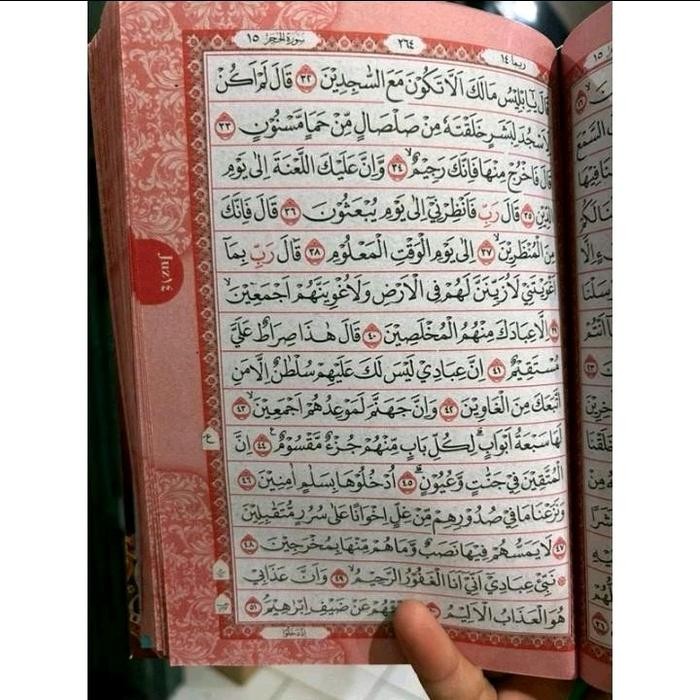 سورة الحجر ١٥
٢٦٤
ربما ١٤
قَالَ يٰٓاِبْلِيْسُ مَا لَكَ اَلَّا تَكُوْنَ مَعَ السّٰجِدِيْنَ ٣٢ قَالَ لَمْ اَكُنْ
لِّاَسْجُدَ لِبَشَرٍ خَلَقْتَهٗ مِنْ صَلْصَالٍ مِّنْ حَمَاٍ مَّسْنُوْنٍ ٣٣
قَالَ فَاخْرُجْ مِنْهَا فَاِنَّكَ رَجِيْمٌۙ ٣٤ وَّاِنَّ عَلَيْكَ اللَّعْنَةَ اِلٰى يَوْمِ
الدِّيْنِ ٣٥ قَالَ رَبِّ فَاَنْظِرْنِيْٓ اِلٰى يَوْمِ يُبْعَثُوْنَ ٣٦ قَالَ فَاِنَّكَ
مِنَ الْمُنْظَرِيْنَۙ ٣٧ اِلٰى يَوْمِ الْوَقْتِ الْمَعْلُوْمِ ٣٨ قَالَ رَبِّ بِمَآ
اَغْوَيْتَنِيْ لَاُزَيِّنَنَّ لَهُمْ فِى الْاَرْضِ وَلَاُغْوِيَنَّهُمْ اَجْمَعِيْنَۙ
٣٩ اِلَّا عِبَادَكَ مِنْهُمُ الْمُخْلَصِيْنَ ٤٠ قَالَ هٰذَا صِرَاطٌ عَلَيَّ
مُسْتَقِيْمٌ ٤١ اِنَّ عِبَادِيْ لَيْسَ لَكَ عَلَيْهِمْ سُلْطٰنٌ اِلَّا مَنِ
اتَّبَعَكَ مِنَ الْغٰوِيْنَ ٤٢ وَاِنَّ جَهَنَّمَ لَمَوْعِدُهُمْ اَجْمَعِيْنَۙ ٤٣
لَهَا سَبْعَةُ اَبْوَابٍۗ لِكُلِّ بَابٍ مِّنْهُمْ جُزْءٌ مَّقْسُوْمٌ ࣖ ٤٤ اِنَّ
الْمُتَّقِيْنَ فِيْ جَنّٰتٍ وَّعُيُوْنٍۗ ٤٥ اُدْخُلُوْهَا بِسَلٰمٍ اٰمِنِيْنَ ٤٦
وَنَزَعْنَا مَا فِيْ صُدُوْرِهِمْ مِّنْ غِلٍّ اِخْوَانًا عَلٰى سُرُرٍ مُّتَقٰبِلِيْنَ
٤٧ لَا يَمَسُّهُمْ فِيْهَا نَصَبٌ وَّمَا هُمْ مِّنْهَا بِمُخْرَجِيْنَ ٤٨
نَبِّئْ عِبَادِيْٓ اَنِّيْٓ اَنَا الْغَفُوْرُ الرَّحِيْمُۙ ٤٩ وَاَنَّ عَذَابِيْ
هُوَ الْعَذَابُ الْاَلِيْمُ عَنْ ضَيْفِ اِبْرٰهِيْمَۘ ٥١
اُدْخُلُوْا
Juz ١٤
ع